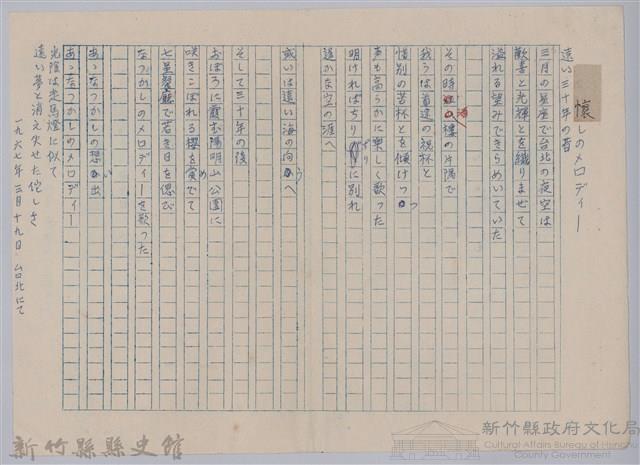 懐しのメロディー
遠い三十年の昔
三月の星座で台北の夜空は
歓喜と光輝とを織りませて
溢れる望みできらめいていた
その時 酒樓の片隅で
我らは首途の祝杯と
惜別の苦杯とを傾けつつ
声も高らかに楽しく歌った
明ければちりぢりに別れ
遥かな空の涯へ
或いは遠い海の向うへ
そして三十年の後
おぼろに霞む陽明山公園に
咲きこぼれる櫻を賞でて
七星餐廳で若き日を偲び
なつかしのメロディーを歌った
あゝなつかしの想い出
あゝなつかしのメロディー
光陰は走馬燈に似て
遠い夢と消え失せた侘しさ
一九六七年三月十九日 台北にて
新竹縣縣史館
新竹縣政府文化局
Cultural Affairs Bureau of Hsinchu
County Government